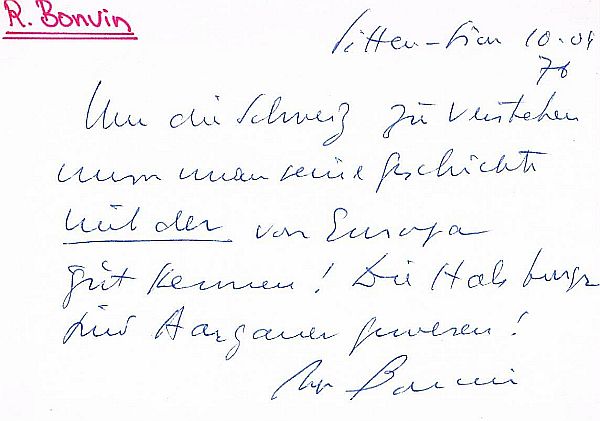 R. Bonvin
Sitten-Sion 10.01
76
Um die Schweiz zu verstehen
muss man seine Geschichte
mit der von Europa
gut kennen! Die Habsburger
sind Aargauer gewesen!
Bonvin